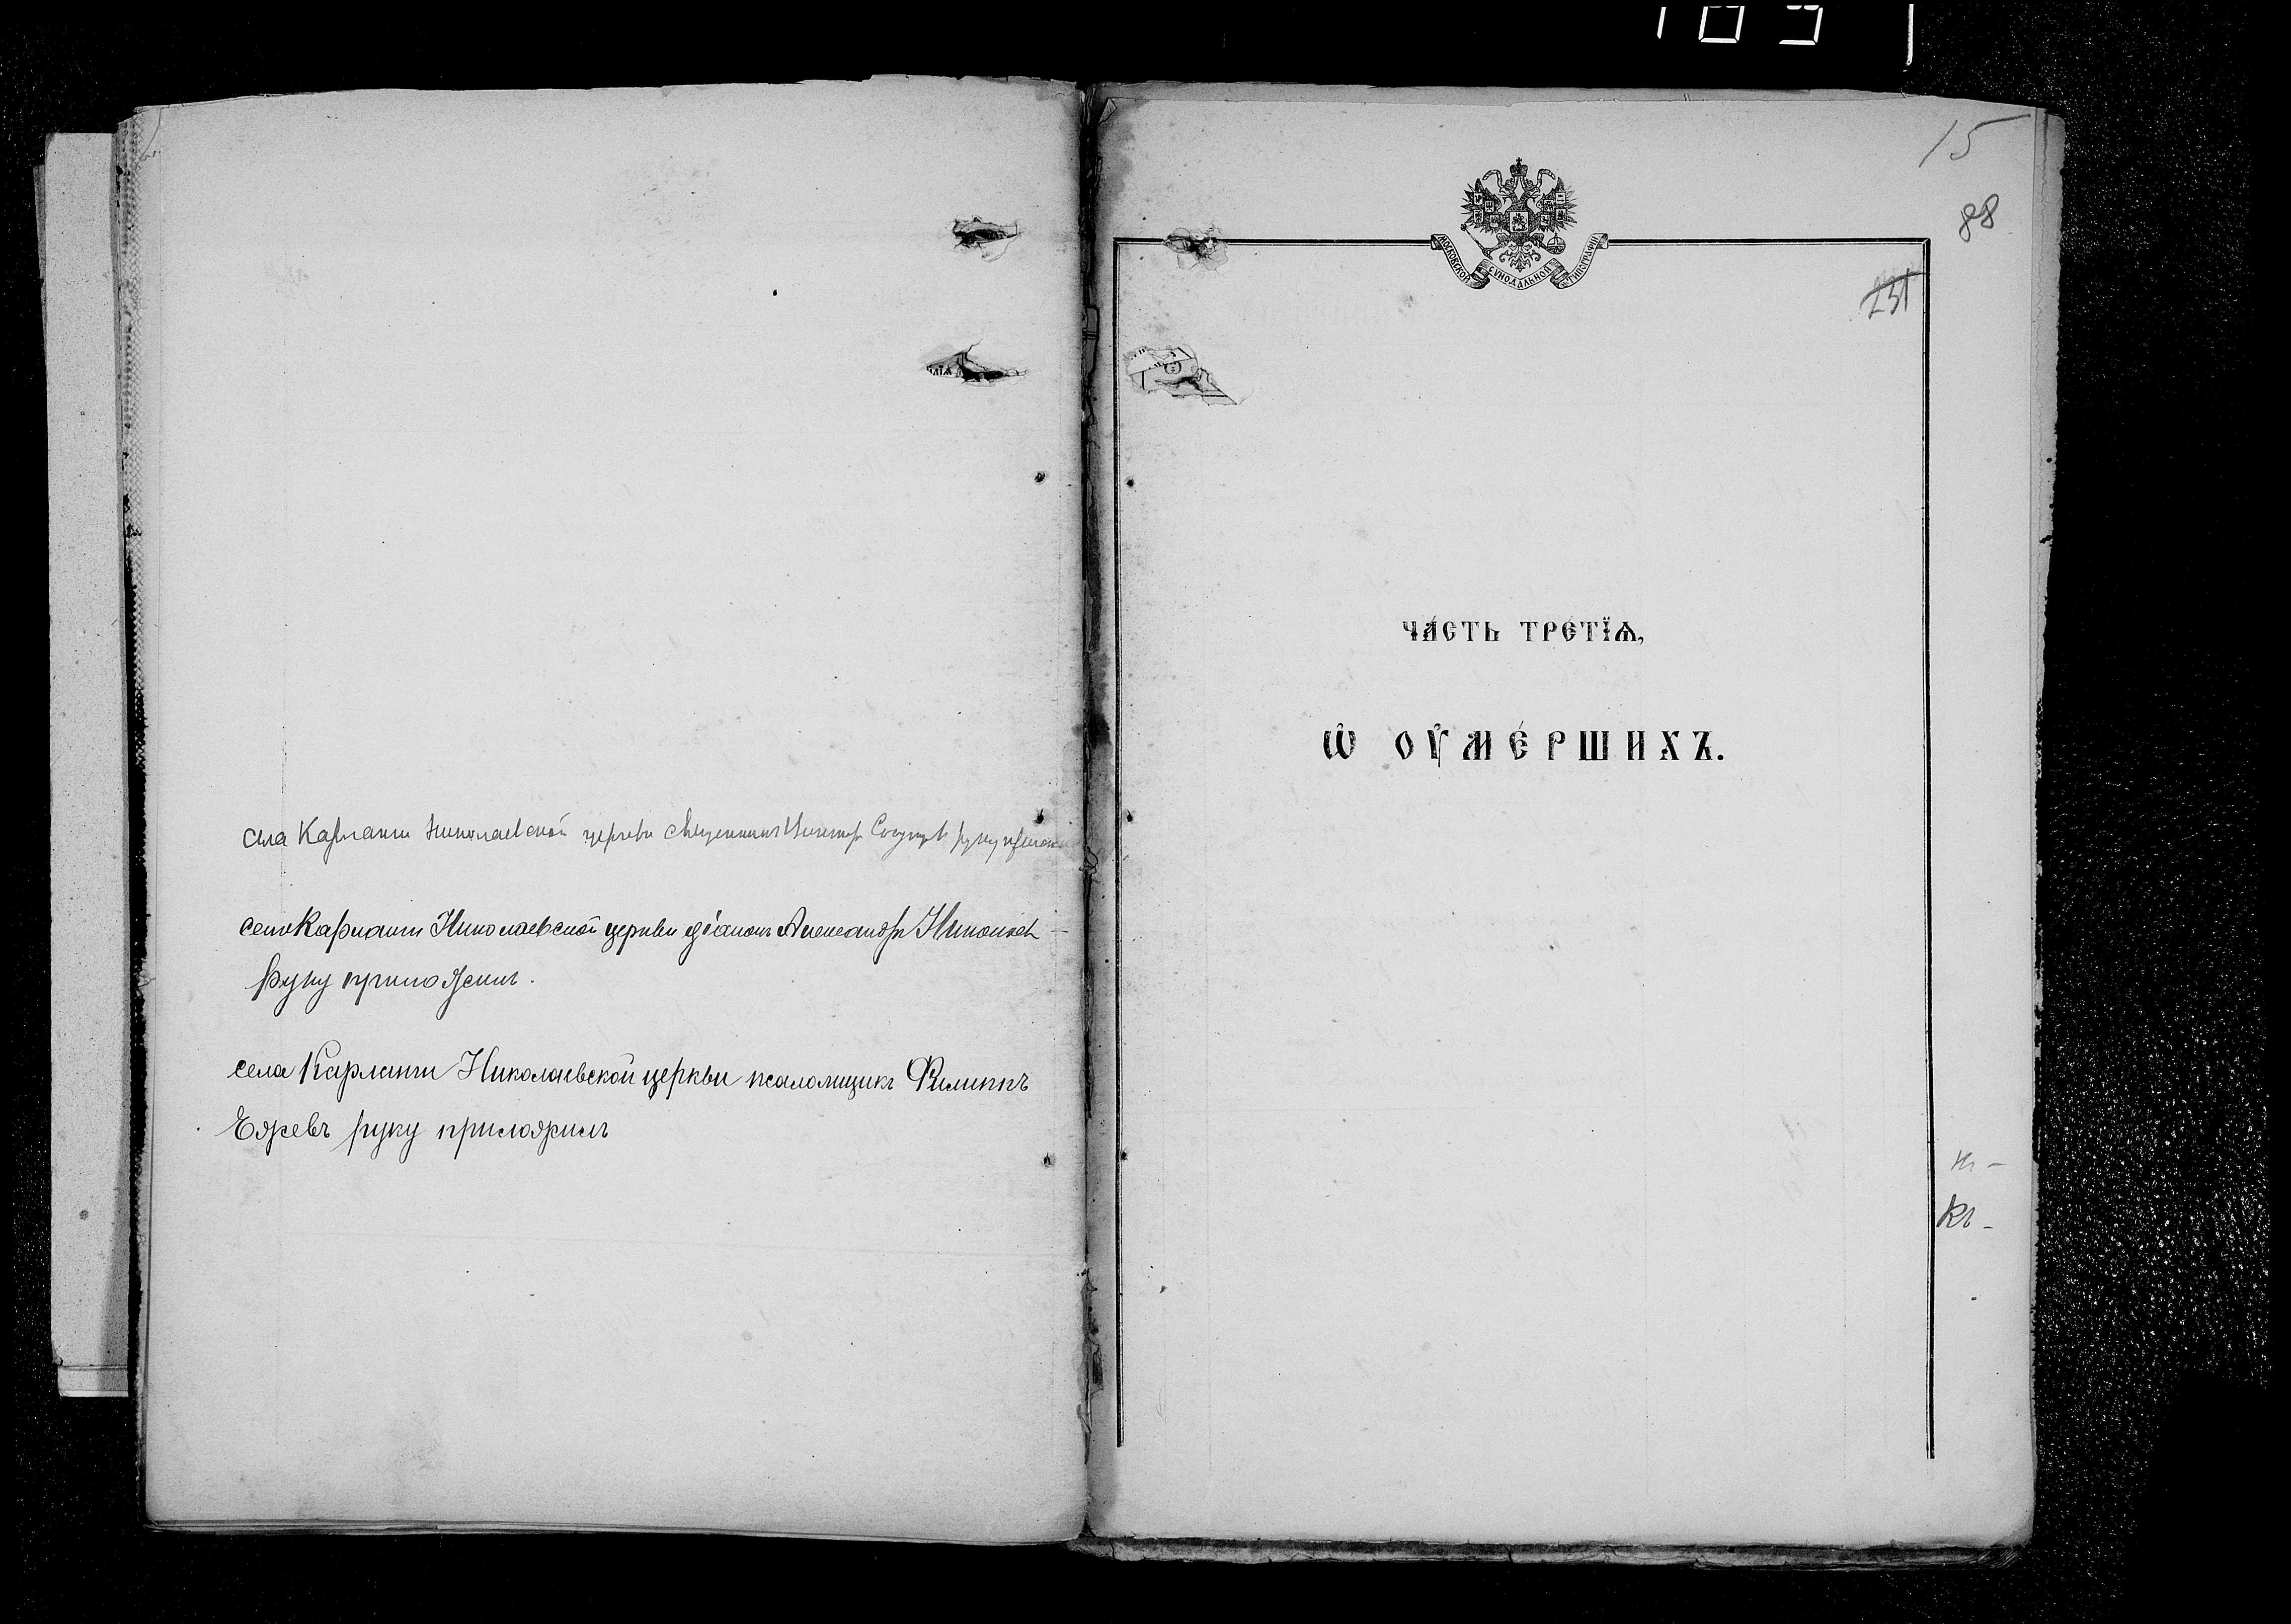 села Карланги Николаевской церкви священникъ руку приложи
села Карланги Николаевской церкви діаконъ Александръ Никоновъ
руку приложилъ.
села Карланги Николаевской церкви псаломщикъ Филиппъ
Ежевъ руку приложилъ
15
88
МОСКОВСКОЙ СѴНОДАЛЬНОЙ ТИПОГРАФІИ
231
ЧА́СТЬ ТРЕ́ТЇѦ,
Ѡ҆ ОУ҆МЕ́РШИХЪ.
Кг -